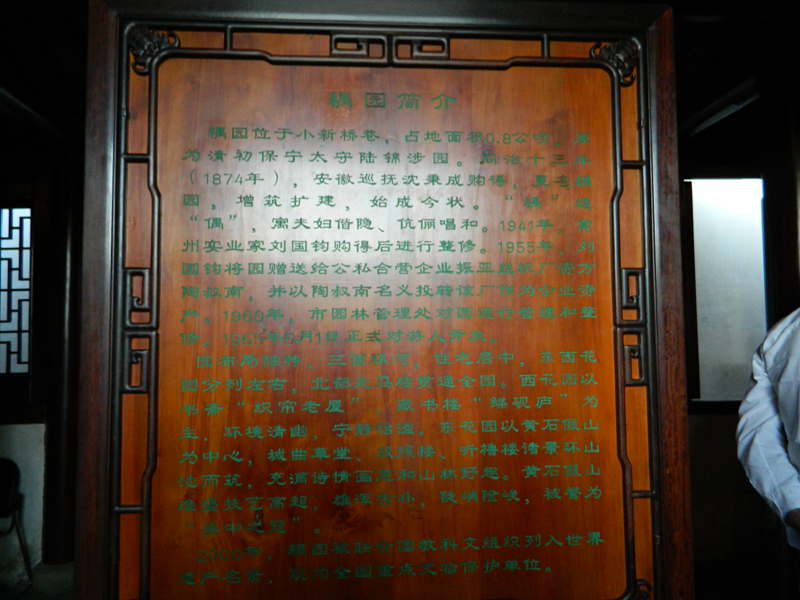 耦园简介
耦园位于小新桥巷，占地面积0.8公顷，原
为清初保宁太守陆锦涉园。同治十三年
（1874年），安徽巡抚沈秉成购得，
园，增筑扩建，始成今状。“耦”通
“偶”，寓夫妇偕隐、伉俪唱和。1941年，常
州实业家刘国钧购得后进行整修。1955年，刘
国钧将园赠送给公私合营企业振亚丝织厂资方
陶叔南，并以陶叔南名义投籍该厂作为企业资
产。1960年，市园林管理处对园进行管理和整
修，1965年5月1日正式对游人开放。
园布局独特，三面环河，住宅居中，东西花
园分列左右，北部走马楼贯通全园。西花园以
书斋“织帘老屋”、藏书楼“鲽砚庐”为
主，环境清幽，宁静恬淡。东花园以黄石假山
为中心，城曲草堂、双照楼、听橹楼诸景环山
池而筑，充满诗情画意和山林野趣。黄石假山
堆叠技艺高超，雄浑古朴，陡峭险峻，被誉为
“吴中之冠”。
2000年，耦园被联合国教科文组织列入世界
遗产名录，现为全国重点文物保护单位。